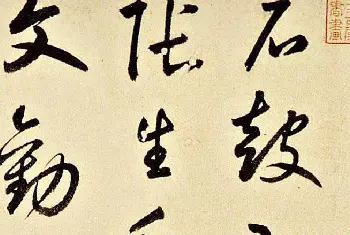 石鼓
張生
文勸